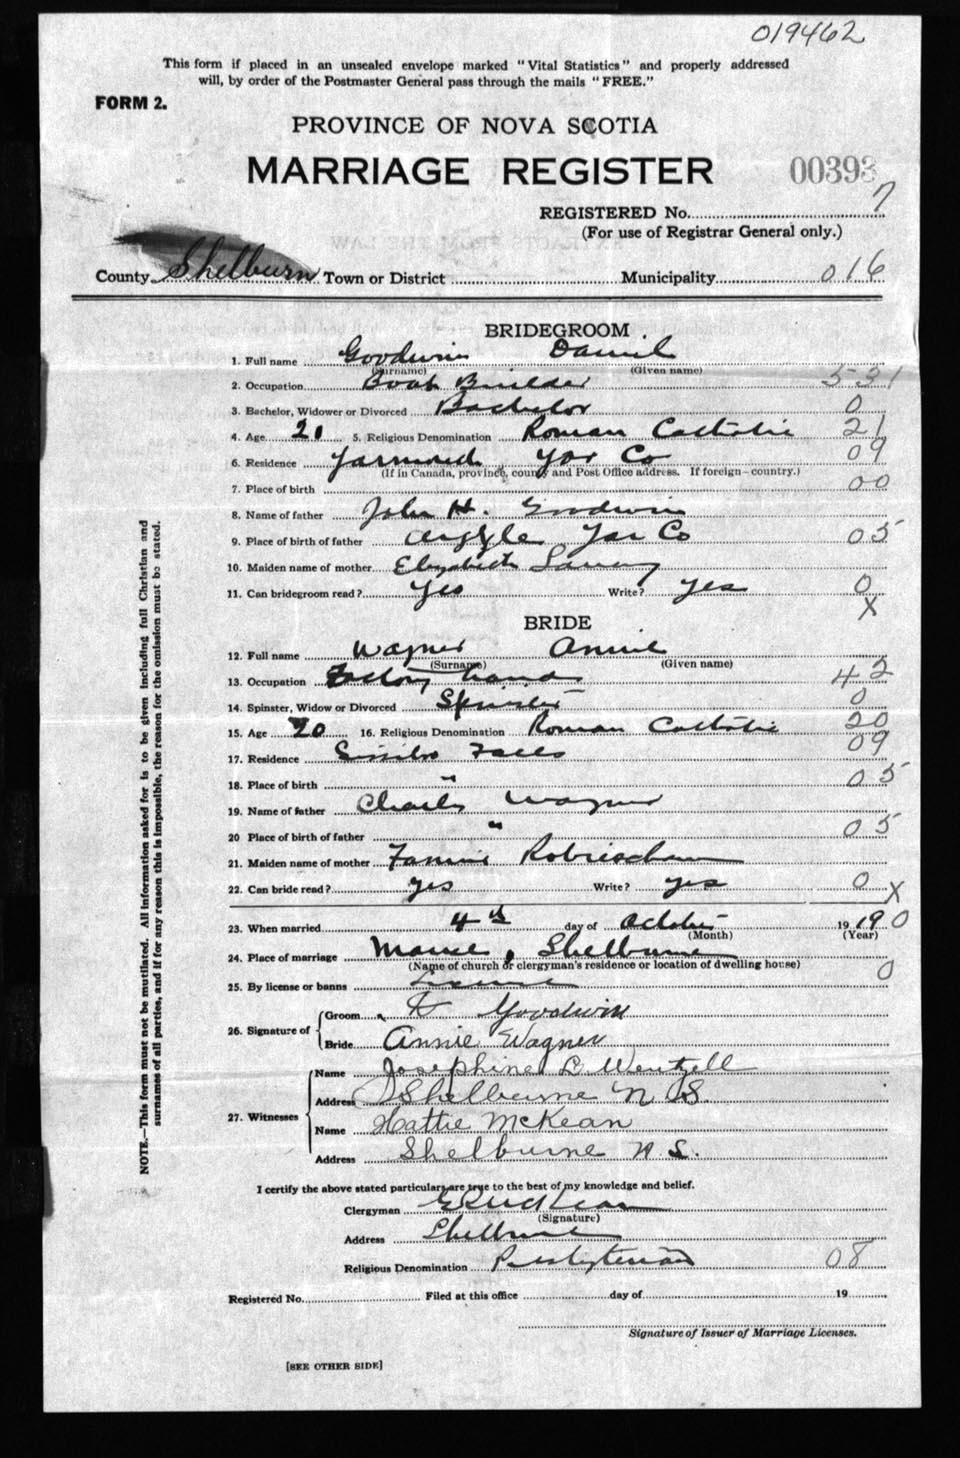 019462
This form if placed in an unsealed envelope marked "Vital Statistics" and properly addressed
will, by order of the Postmaster General pass through the mails "FREE."
FORM 2.
PROVINCE OF NOVA SCOTIA
MARRIAGE REGISTER 00393
REGISTERED No. 7
(For use of Registrar General only.)
County Shelburn Town or District Municipality 016
BRIDEGROOM
1. Full name Goodwin Daniel
(Surname) (Given name)
2. Occupation Boat Builder 531
3. Bachelor, Widower or Divorced Bachelor 0
4. Age 20 5. Religious Denomination Roman Catholic 21
6. Residence Yarmouth Yar Co 09
(If in Canada, province, county and Post Office address. If foreign—country.)
7. Place of birth 00
8. Name of father John H. Goodwin
9. Place of birth of father Argyle Yar Co 05
10. Maiden name of mother Elizabeth
11. Can bridegroom read? Yes Write? Yes 0
X
BRIDE
12. Full name Wagner Annie
(Surname) (Given name)
13. Occupation Factory hand 42
14. Spinster, Widow or Divorced Spinster 0
15. Age 20 16. Religious Denomination Roman Catholic 20
17. Residence Falls 09
18. Place of birth " 05
19. Name of father Charles Wagner
20 Place of birth of father " 05
21. Maiden name of mother Fannie
22. Can bride read? yes Write? yes 0 X
23. When married 4th day of October 1919 0
(Month) (Year)
24. Place of marriage Manse, Shelburne
(Name of church or clergyman's residence or location of dwelling house) 0
25. By license or banns License
26. Signature of Groom Goodwin
Bride Annie Wagner
27. Witnesses
Name Josephine L. Wentzell
Address Shelburne N.S.
Name Hattie McKean
Address Shelburne N.S.
I certify the above stated particulars are true to the best of my knowledge and belief.
Clergyman
(Signature)
Address Shelburne
Religious Denomination Presbyterian 08
Registered No. Filed at this office day of 19
Signature of Issuer of Marriage Licenses.
[SEE OTHER SIDE]
NOTE.—This form must not be mutilated. All information asked for is to be given including full Christian and
surnames of all parties, and if for any reason this is impossible, the reason for the omission must be stated.